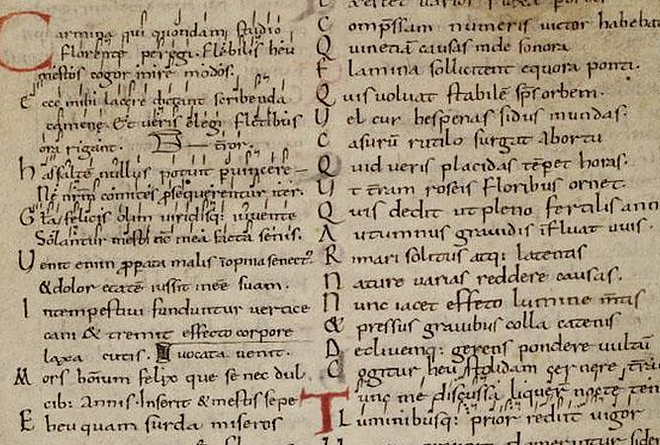 Carmina qui quondam studio
florente peregi. Flebilis heu
mestos cogor inire modos.
Ecce mihi lacere dictant scribenda
camene. Et ueris elegi fletibus
ora rigant.
has saltē nullus potuit
Ne nrm̄ comites ꝑsequerentur iter.
felicis olim uiridisq; iuuente
Solantur mesti nc̄ mea facta senis.
Uenit enim ꝓꝑata malis īopina senect᾽
&dolor etatē iussit inēe suam.
Intempestiui funduntur uertice
cani & tremit effecto corpore
laxa cutis. uocata uenit.
Mors hoīum felix que se nec dul
cib: Annis. Inserit & mestis sepe
Eheu quam surda miseros
Compssam numeris uictor
Quinetiā causas unde sonora
Flamina sollicitent equora ponti.
Quis uoluat stabilē sps orbem.
Uel cur hesperias sidus in undas.
Casurū rutilo surgat abortu
Quid ueris placidas tēpet horas.
Ut ēram roseis floribus ornet.
Quis dedit ut pleno fertilis
Autumnus grauidis īfluat uuis.
Rimari solitus atq; latentis
Nature uarias reddere causas.
Nunc iacet effeto lumine m̄tis
& pressus grauibus colla catenis
Decliuemq: gerens pondere uultū
Cogitur heu stolidam cernere
Tunc me discussa liquer nocte
Luminibusq: prior rediit uigor